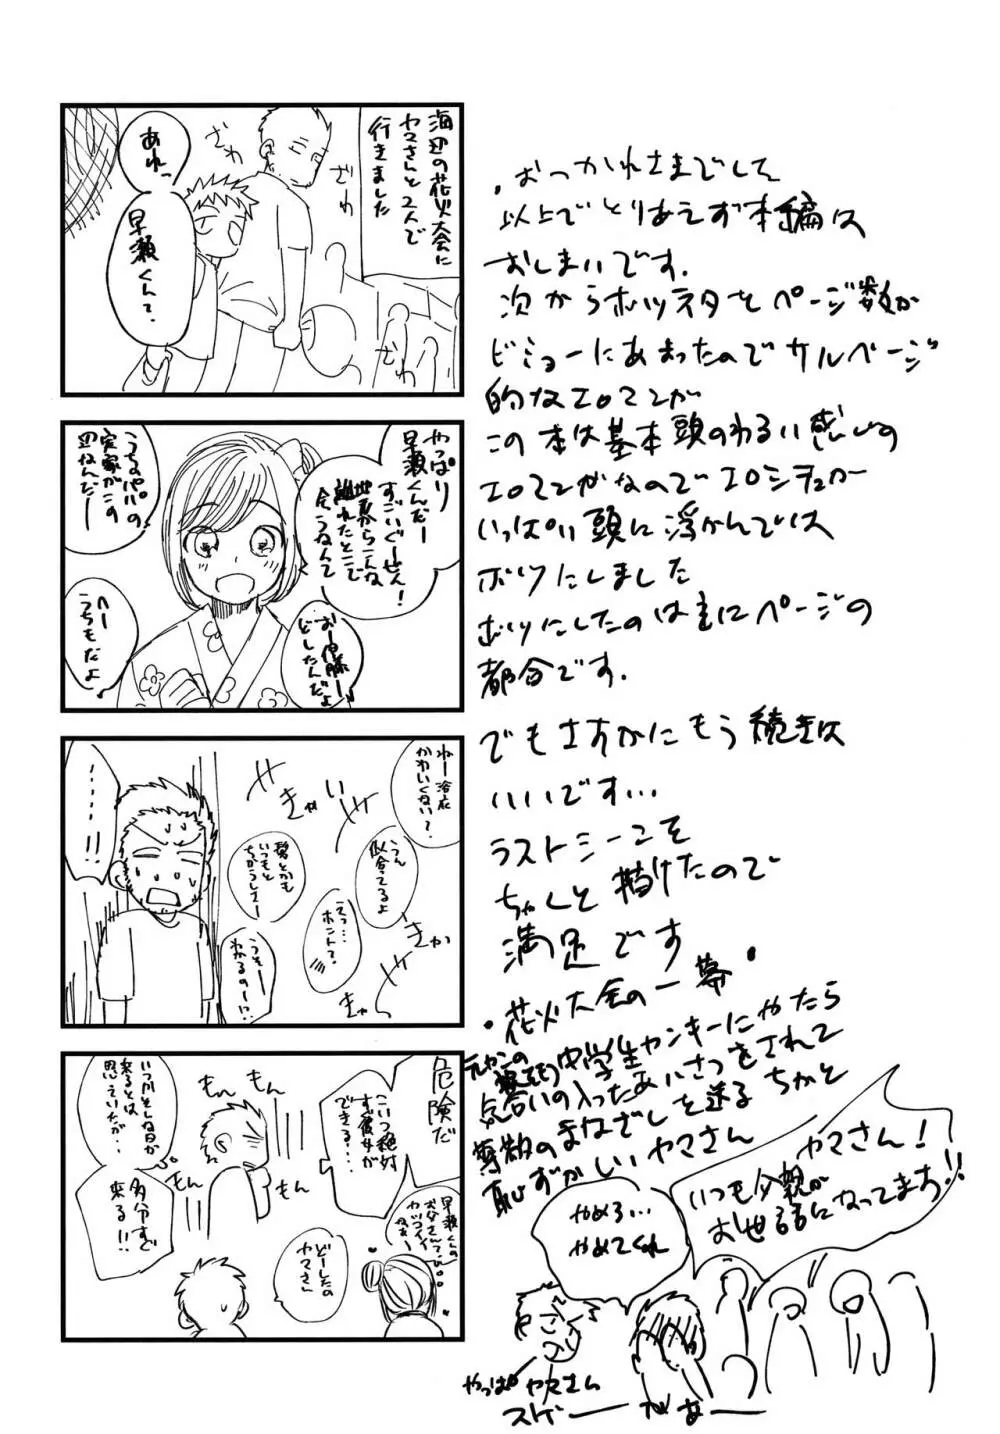 海辺の花火大会に
ヤマさんと2人で
行きました
ざわ
ざわ
ざわ
あれっ
早瀬くんて、
やっぱり
早瀬くんだー
すごいぐーぜん!
地元からこんな
離れたとこで
会うなんて
うちのパパの
実家がこの
辺なんだー
おー伊藤ー
どしたんだよ
へー
うちもだよ
ねー浴衣
かわいくない?
ううん
似合ってるよ
髪とかも
いつもと
ちがうしさー
えっ…
ホント?
うそー
わかるのー!?
きゃ
きゃ
きゃ
きゃ
……!!
危険だ
こいつ絶対
すぐ彼女が
できる…
いつかそんな日が
来るとは
思っていたが…
多分すぐ
来る!!
もん
もん
もん
もん
早瀬くんの
お父さんて
カッコイイ
なぁ…
どーしたの
ヤマさん
・おつかれさまでして
以上でとりあえず本編は
おしまいです.
次からボツネタをページ数が
ビミョーにあまったのでサルベージ
的なエロマンガ
この本は基本頭のわるい感じの
エロマンガなのでエロシチュが
いっぱい頭に浮かんでは
ボツにしました
ボツにしたのは主にページの
都合です.
でもさすがにもう続きは
いいです…
ラストシーンこそ
ちゃんと描けたので
満足です
・花火大会の一幕・
元ヤンの中学生ヤンキーにやたら
気合いの入ったあいさつをされて
尊敬のまなざしを送る ちかと
恥ずかしいヤマさん
ヤマさん!
いつも父親が
お世話になってます!!
やめろ…
やめてくれ
やっぱ ヤマさん
スゲー
があー